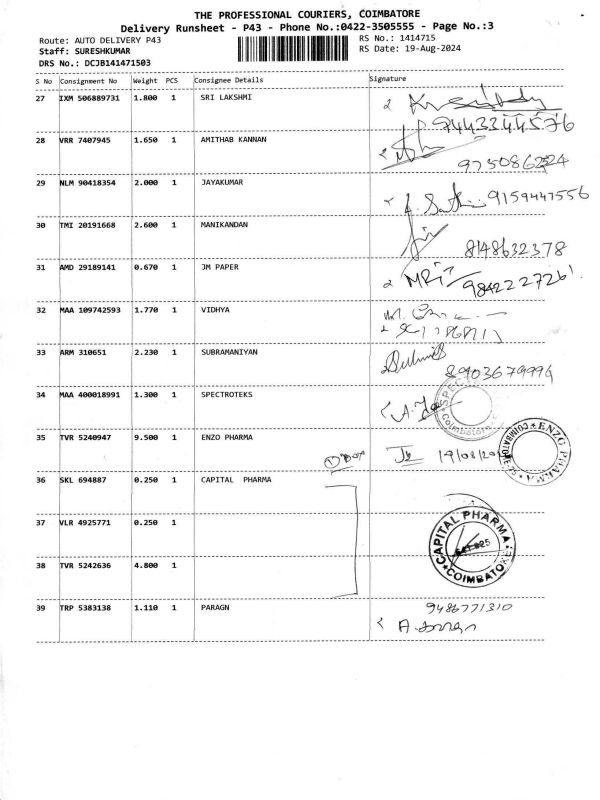 THE PROFESSIONAL COURIERS, COIMBATORE
Delivery Runsheet - P43 - Phone No.:0422-3505555 - Page No.:3
Route: AUTO DELIVERY P43
RS No.: 1414715
Staff: SURESHKUMAR
RS Date: 19-Aug-2024
DRS No.: DCJB141471503
S No Consignment No Weight PCS Consignee Details Signature
27 IXM 506889731 1.800 1 SRI LAKSHMI
9443344576
28 VRR 7407945 1.650 1 AMITHAB KANNAN
9750862224
29 NLM 90418354 2.000 1 JAYAKUMAR
9159447556
30 TMI 20191668 2.600 1 MANIKANDAN
8148632378
31 AMD 29189141 0.670 1 JM PAPER
9842227261
32 MAA 109742593 1.770 1 VIDHYA
33 ARM 310651 2.230 1 SUBRAMANIYAN
8903679994
34 MAA 400018991 1.300 1 SPECTROTEKS
Coimbatore
35 TVR 5240947 9.500 1 ENZO PHARMA
19/08/20
ENZO PHARMA
COIMBATORE-25
36 SKL 694887 0.250 1 CAPITAL PHARMA
37 VLR 4925771 0.250 1
CAPITAL PHARMA
COIMBATORE
38 TVR 5242636 4.800 1
39 TRP 5383138 1.110 1 PARAGN
9486771310